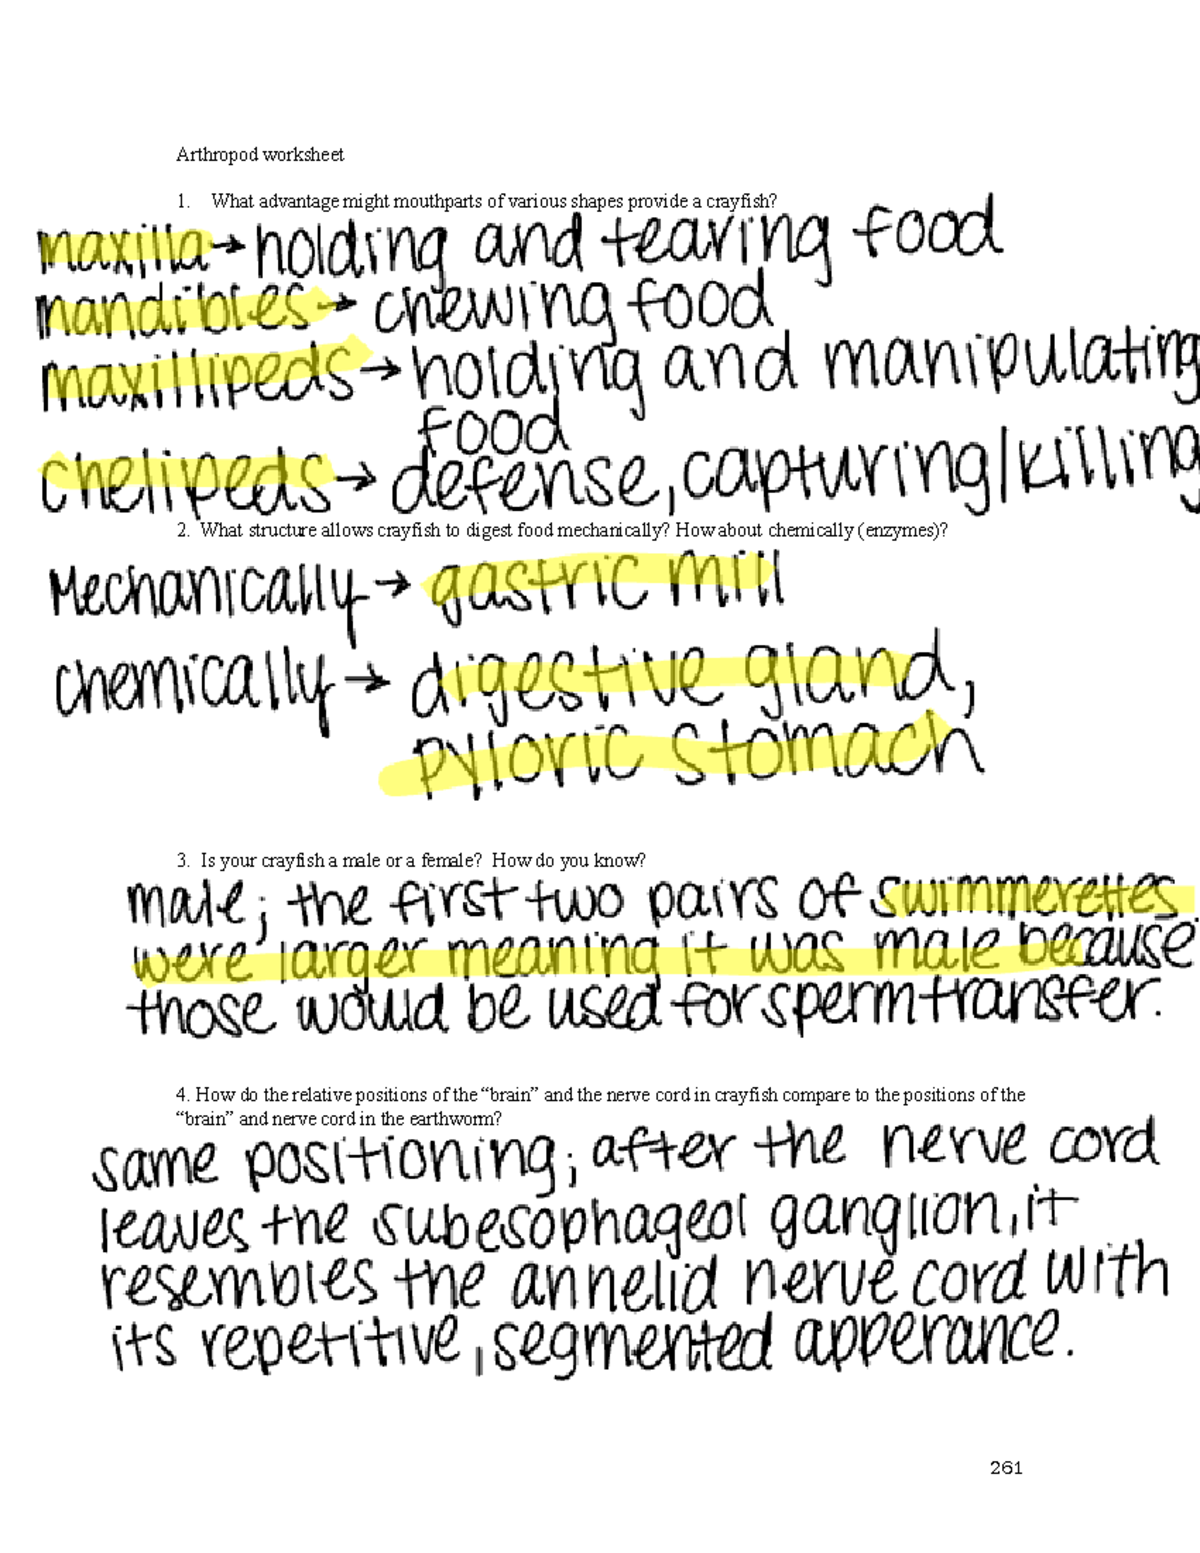 Arthropod worksheet
1. What advantage might mouthparts of various shapes provide a crayfish?
maxilla→holding and tearing food
mandibles→ chewing food
maxillipeds→holding and manipulating
food
chelipeds→ defense, capturing/killing
2. What structure allows crayfish to digest food mechanically? How about chemically (enzymes)?
Mechanically→ gastric mill
chemically→ digestive gland,
pyloric stomach
3. Is your crayfish a male or a female? How do you know?
male; the first two pairs of swimmerettes
were larger meaning it was male because
those would be used for sperm transfer.
4. How do the relative positions of the “brain” and the nerve cord in crayfish compare to the positions of the
“brain” and nerve cord in the earthworm?
same positioning; after the nerve cord
leaves the subesophageol ganglion, it
resembles the annelid nerve cord with
its repetitive, segmented apperance.
261